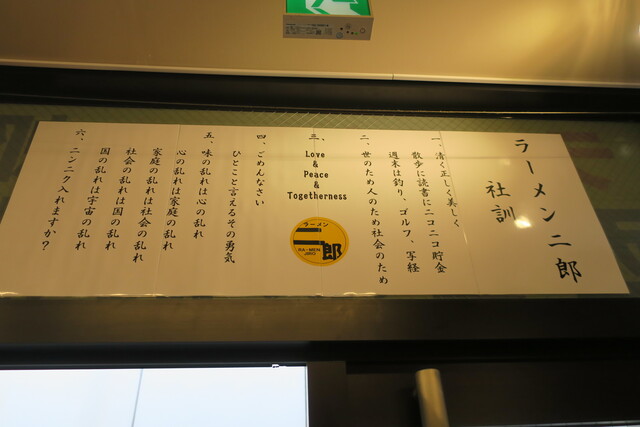 ラーメン二郎
社訓
一、清く正しく美しく
散歩に読書にニコニコ貯金
週末は釣り、ゴルフ、写経
二、世のため人のため社会のため
三、
Love
&
Peace
&
Togetherness
ラーメン
二郎
RA-MEN
JIRO
四、ごめんなさい
ひとこと言えるその勇気
五、味の乱れは心の乱れ
心の乱れは家庭の乱れ
家庭の乱れは社会の乱れ
社会の乱れは国の乱れ
国の乱れは宇宙の乱れ
六、ニンニク入れますか？